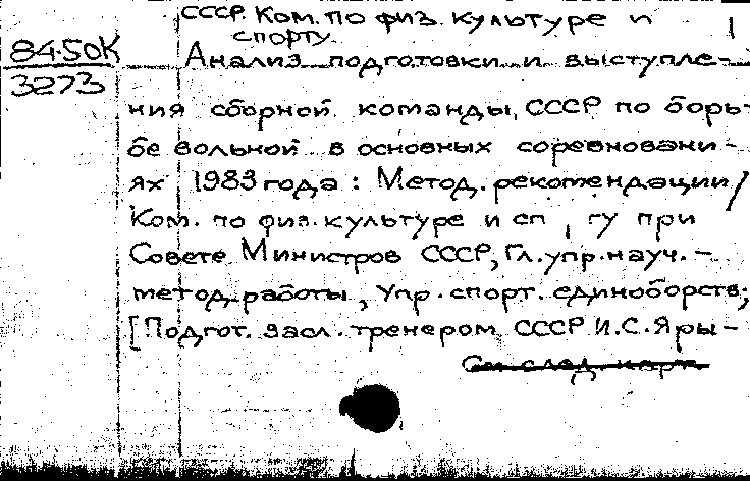 СССР. Ком. по физ. культуре и 1
спорту.
84-50К Анализ подготовки и выступле-
3273
ния сборной команды СССР по борь-
бе вольной в основных соревновани-
ях 1983 года : Метод. рекомендации /
Ком. по физ. культуре и при
Совете Министров СССР, Гл. упр. науч. -
метод. работы, Упр. спорт. единоборств;
[Подгот. засл. тренером СССР И.С. Яры-
См. след. карт.